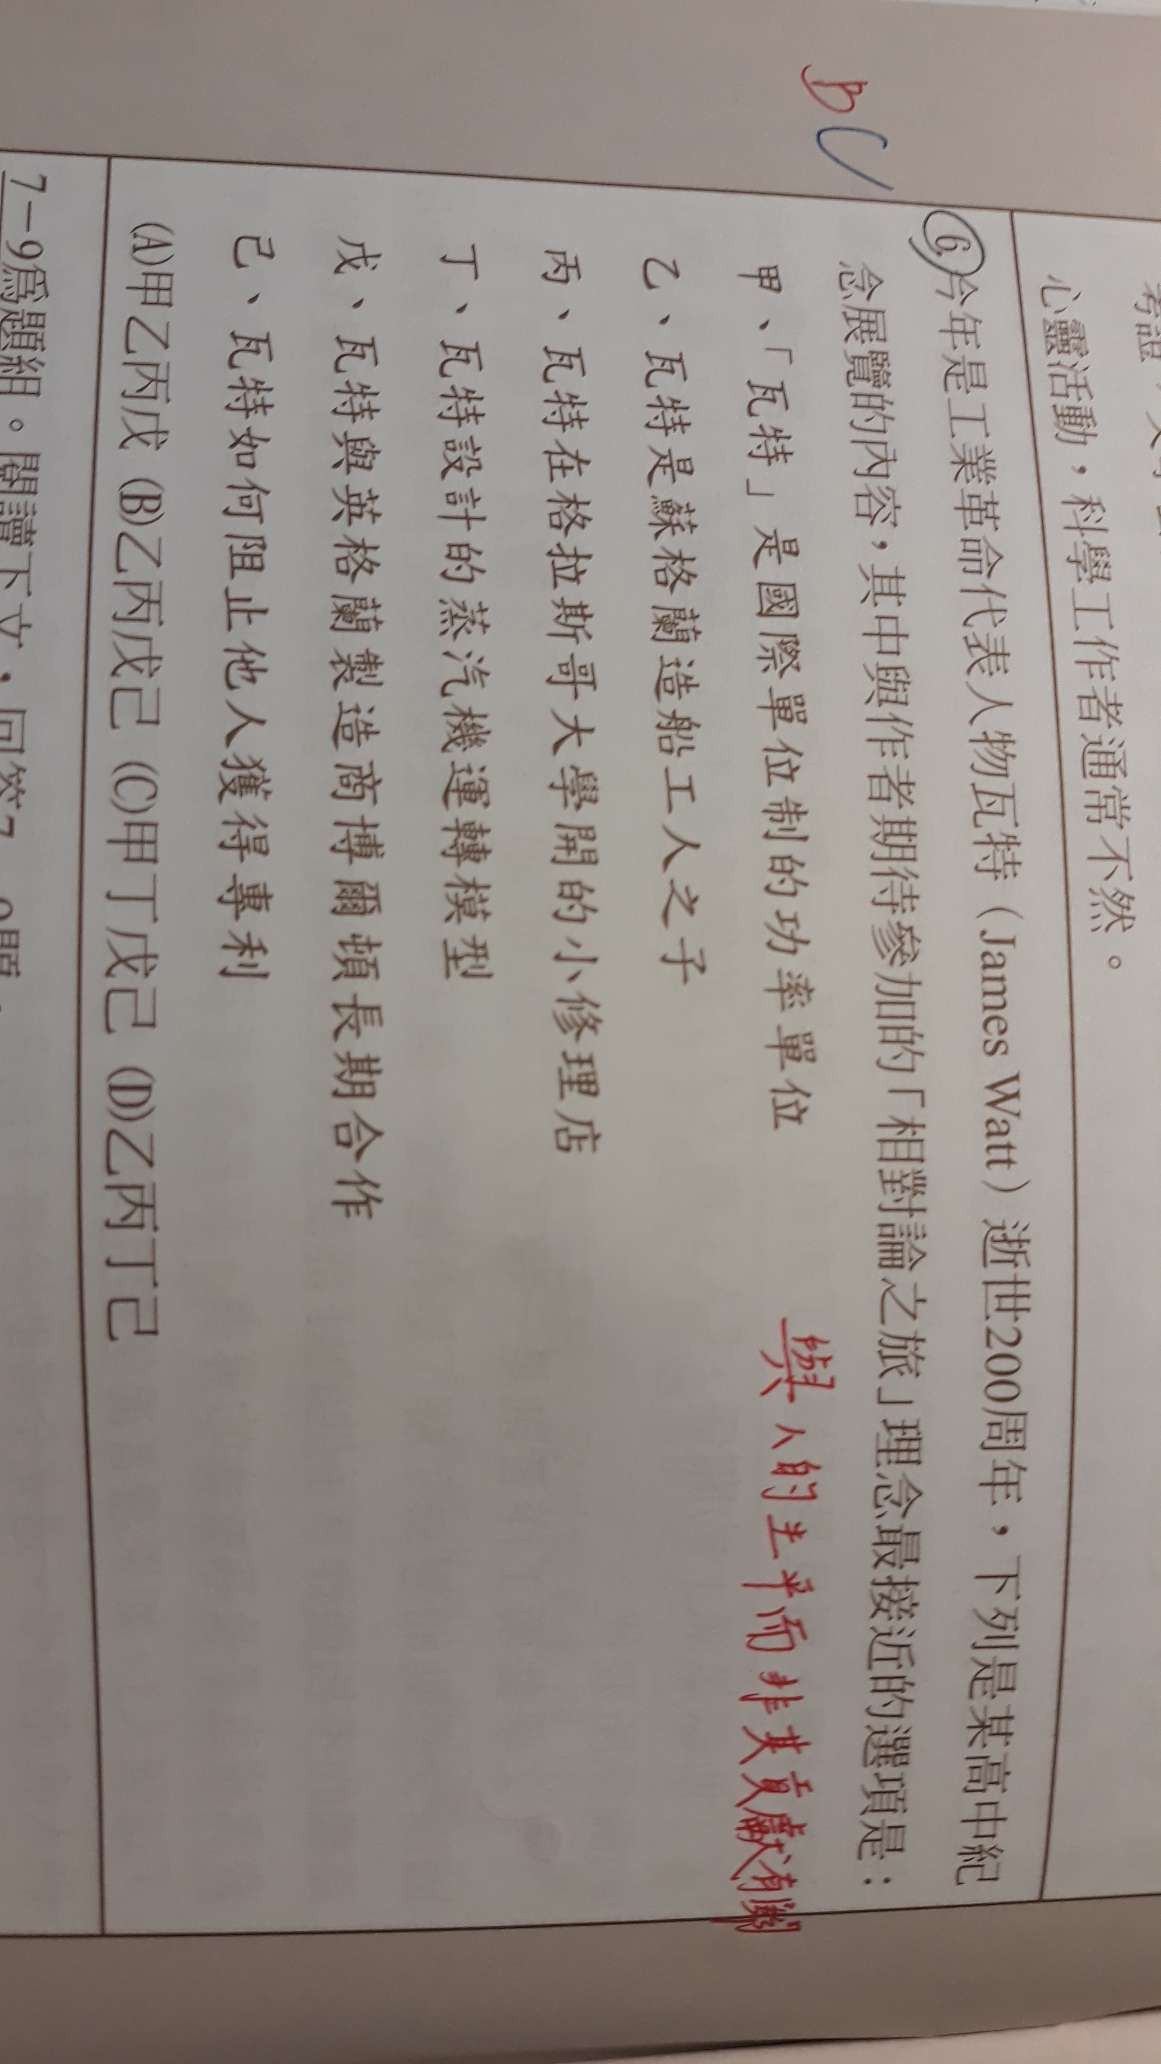 心靈活動，科學工作者通常不然。
B C
6.今年是工業革命代表人物瓦特（James Watt）逝世200周年，下列是某高中紀
念展覽的內容，其中與作者期待參加的「相對論之旅」理念最接近的選項是：
甲、「瓦特」是國際單位制的功率單位
與人的生平而非其貢獻有關
乙、瓦特是蘇格蘭造船工人之子
丙、瓦特在格拉斯哥大學開的小修理店
丁、瓦特設計的蒸汽機運轉模型
戊、瓦特與英格蘭製造商博爾頓長期合作
己、瓦特如何阻止他人獲得專利
(A)甲乙丙戊 (B)乙丙戊己 (C)甲丁戊己 (D)乙丙丁己
7－9為題組。閱讀下文，回答7